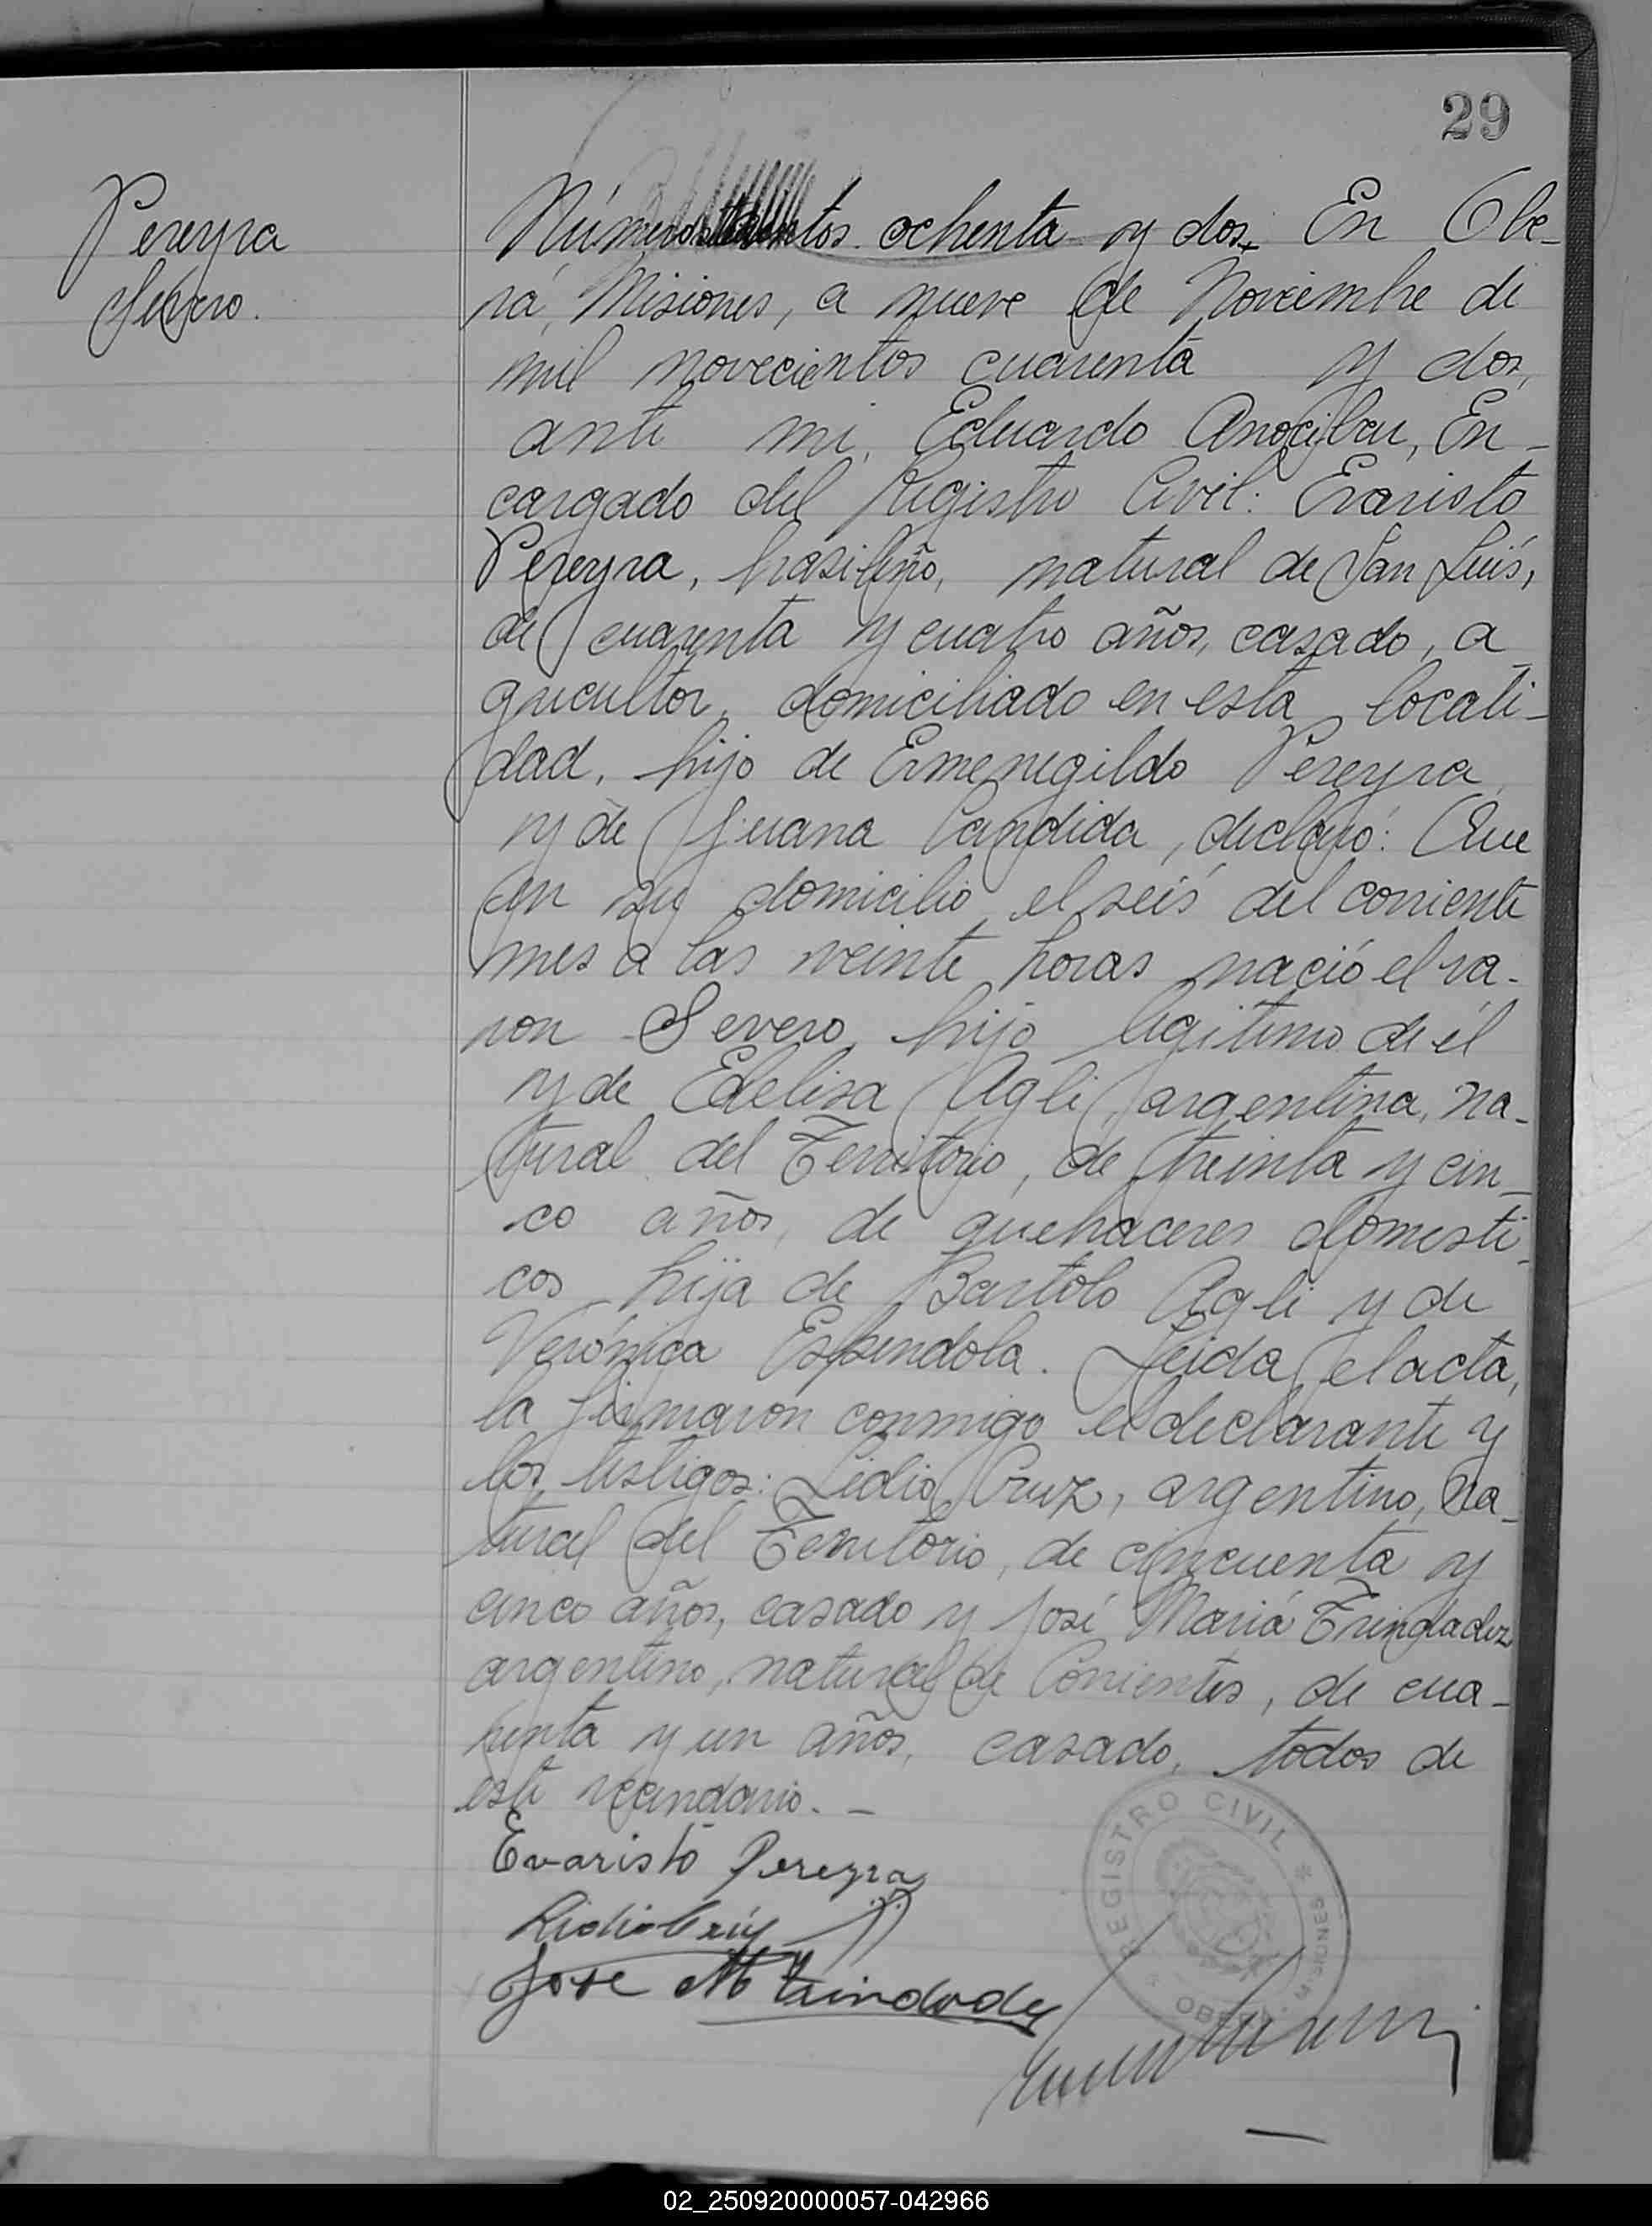 29
Pereyra
Severo.
Número tos ochenta y dos. En Obe-
rá, Misiones, a nueve de Noviembre de
mil novecientos cuarenta y dos,
ante mi, Eduardo Anocibar, En-
cargado del Registro Civil: Evaristo
Pereyra, brasileño, natural de San Luis,
de cuarenta y cuatro años, casado, a
gricultor, domiciliado en esta locali-
dad, hijo de Ermenegildo Pereyra
y de Juana Candida, declaró: Que
en su domicilio el seis del corriente
mes a las veinte horas nació el va-
ron Severo, hijo legitimo de él
y de Edelisa Agli, argentina, na-
tural del Territorio, de treinta y cin-
co años, de quehaceres domesti-
cos hija de Bartolo Agli y de
Verónica Espindola. Leida el acta,
la firmaron conmigo el declarante y
los testigos: Lidio Cruz, argentino, na-
tural del Territorio, de cincuenta y
cinco años, casado y José María Trindadez
argentino, natural de Corrientes, de cua-
renta y un años, casado, todos de
este vecindario. -
Evaristo Pereyra
Lidio Crúz
Jose M Trindade
REGISTRO CIVIL * MISIONES * OBERÁ
02_250920000057-042966